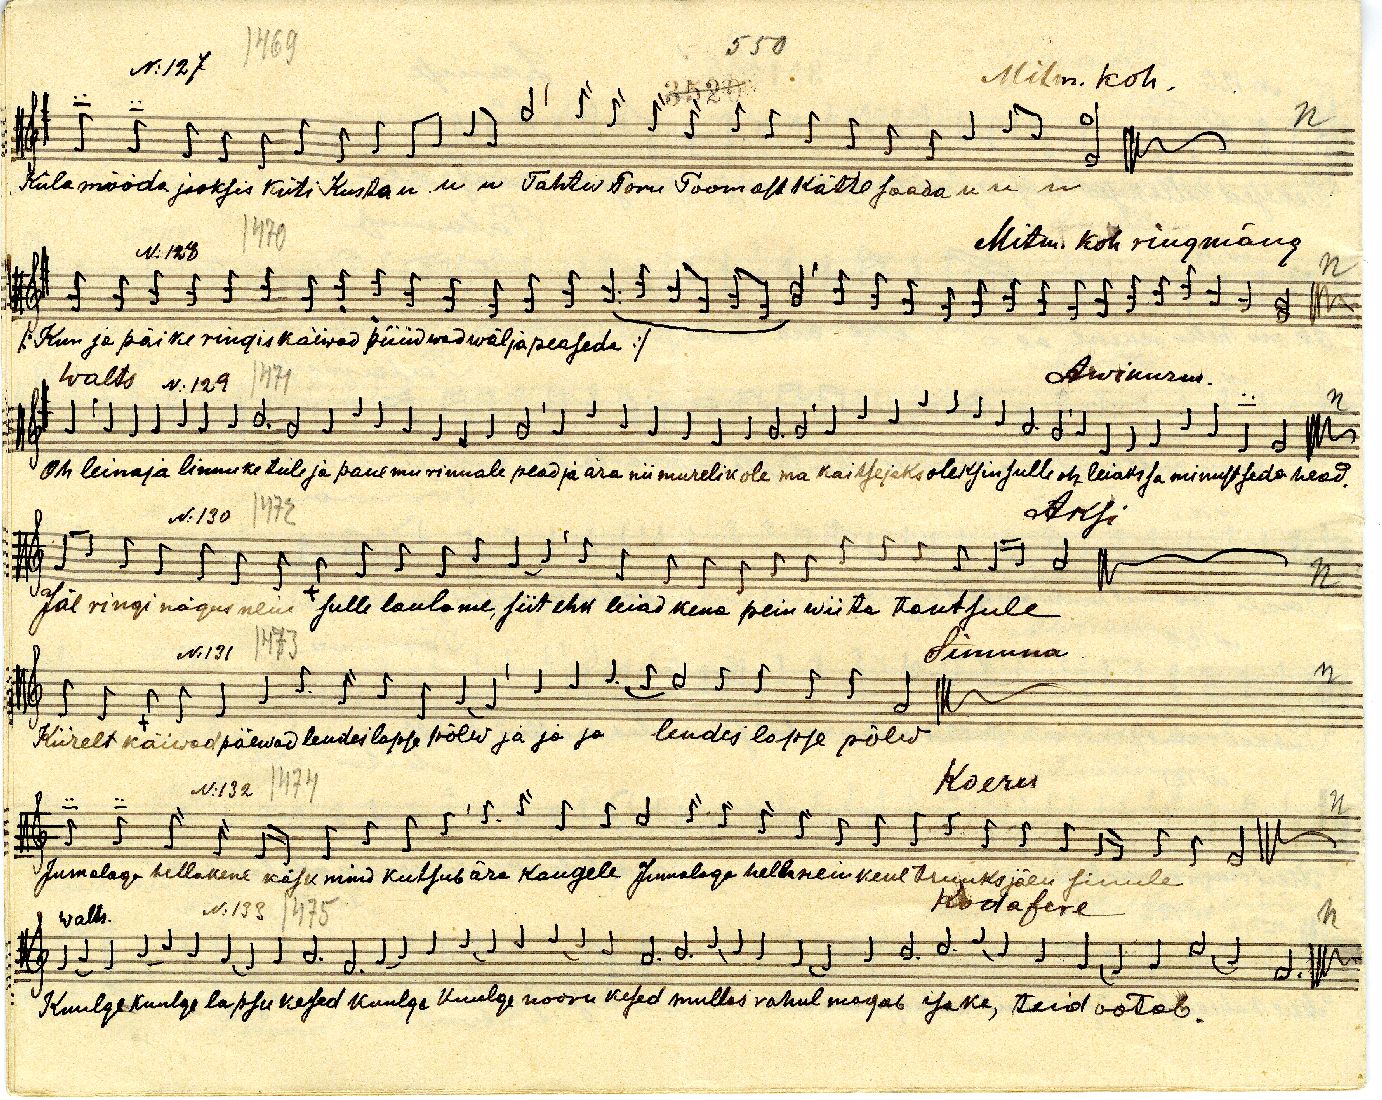 1469
550
No: 127
3520
Mitm. koh.
n
Küla mööda jooksis Küti Kusta u u u Tahtis Toru Toomast Kätte saada u u u
1470
No: 128
Mitm. koh ringmäng
n
/: Kuu ja päike ringis käiwad püüdwad wälja peaseda :/
Walts No: 129 1471
Arwikurm.
n
Oh leina ja linnuke tule ja pane mu rinnale pead ja ära nii murelik ole ma kaitsejaks oleksin sulle oh leiaks sa minust seda head.
No: 130 1472
Aksi
n
Jäl ringi nägus neiu sulle laulame, siit ehk leiad kena pein wiita tantsule
No: 131 1473
Simuna
n
Kiirelt käiwad päewad lendes lapse põlw ja ja ja lendes lapse põlw
No: 132 1474
Koeru
n
Jumalaga hellakene käsu mind kutsub ära kaugele Jumalaga hella neiukene truuks jäen sinule
walts. No: 133 1475
Kodafere
n
Kuulge kuulge lapsukesed kuulge kuulge noorukesed mullas rahul magab isake, teid ootab.